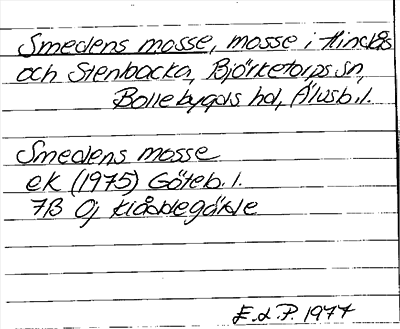 Smedens mosse, mosse i Hindås
och Stenbacka, Björketorps sn,
Bollebygds hd, Älvsb. l.
Smedens mosse
ek (1975) Göteb. l.
7B 0j Klåddegärde
E. d P. 1977